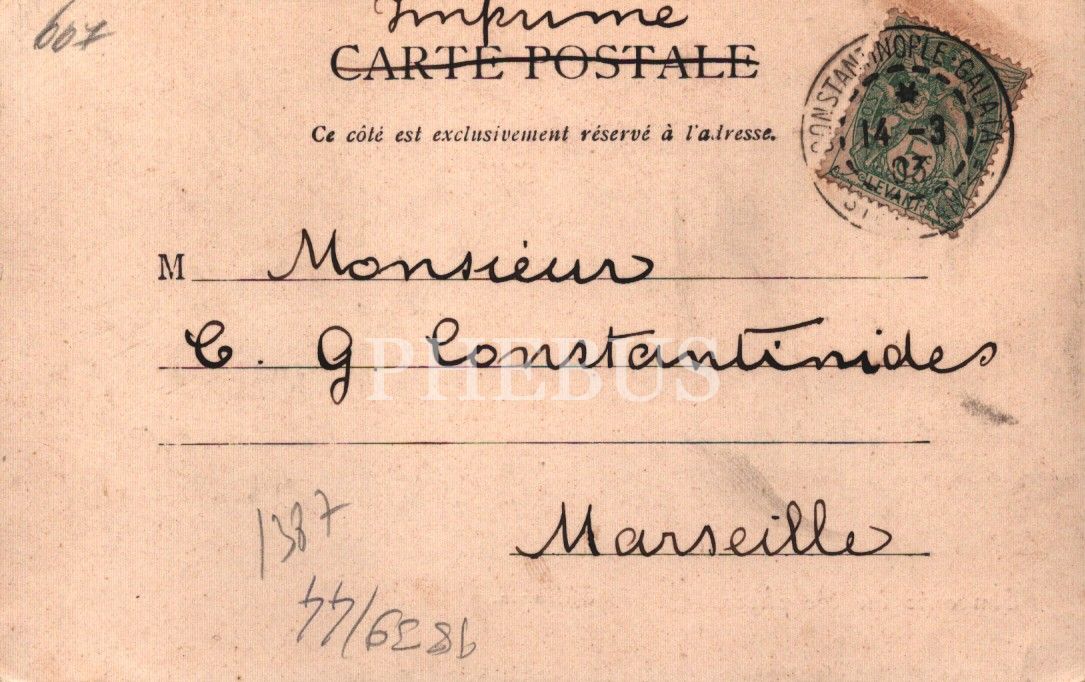 607
Imprimé
CARTE POSTALE
CONSTANTINOPLE-GALATA
14 -3
03
LEVANT
Ce côté est exclusivement réservé à l'adresse.
M Monsieur
C. G. Constantinides
PHEBUS
Marseille
1387
9839/44